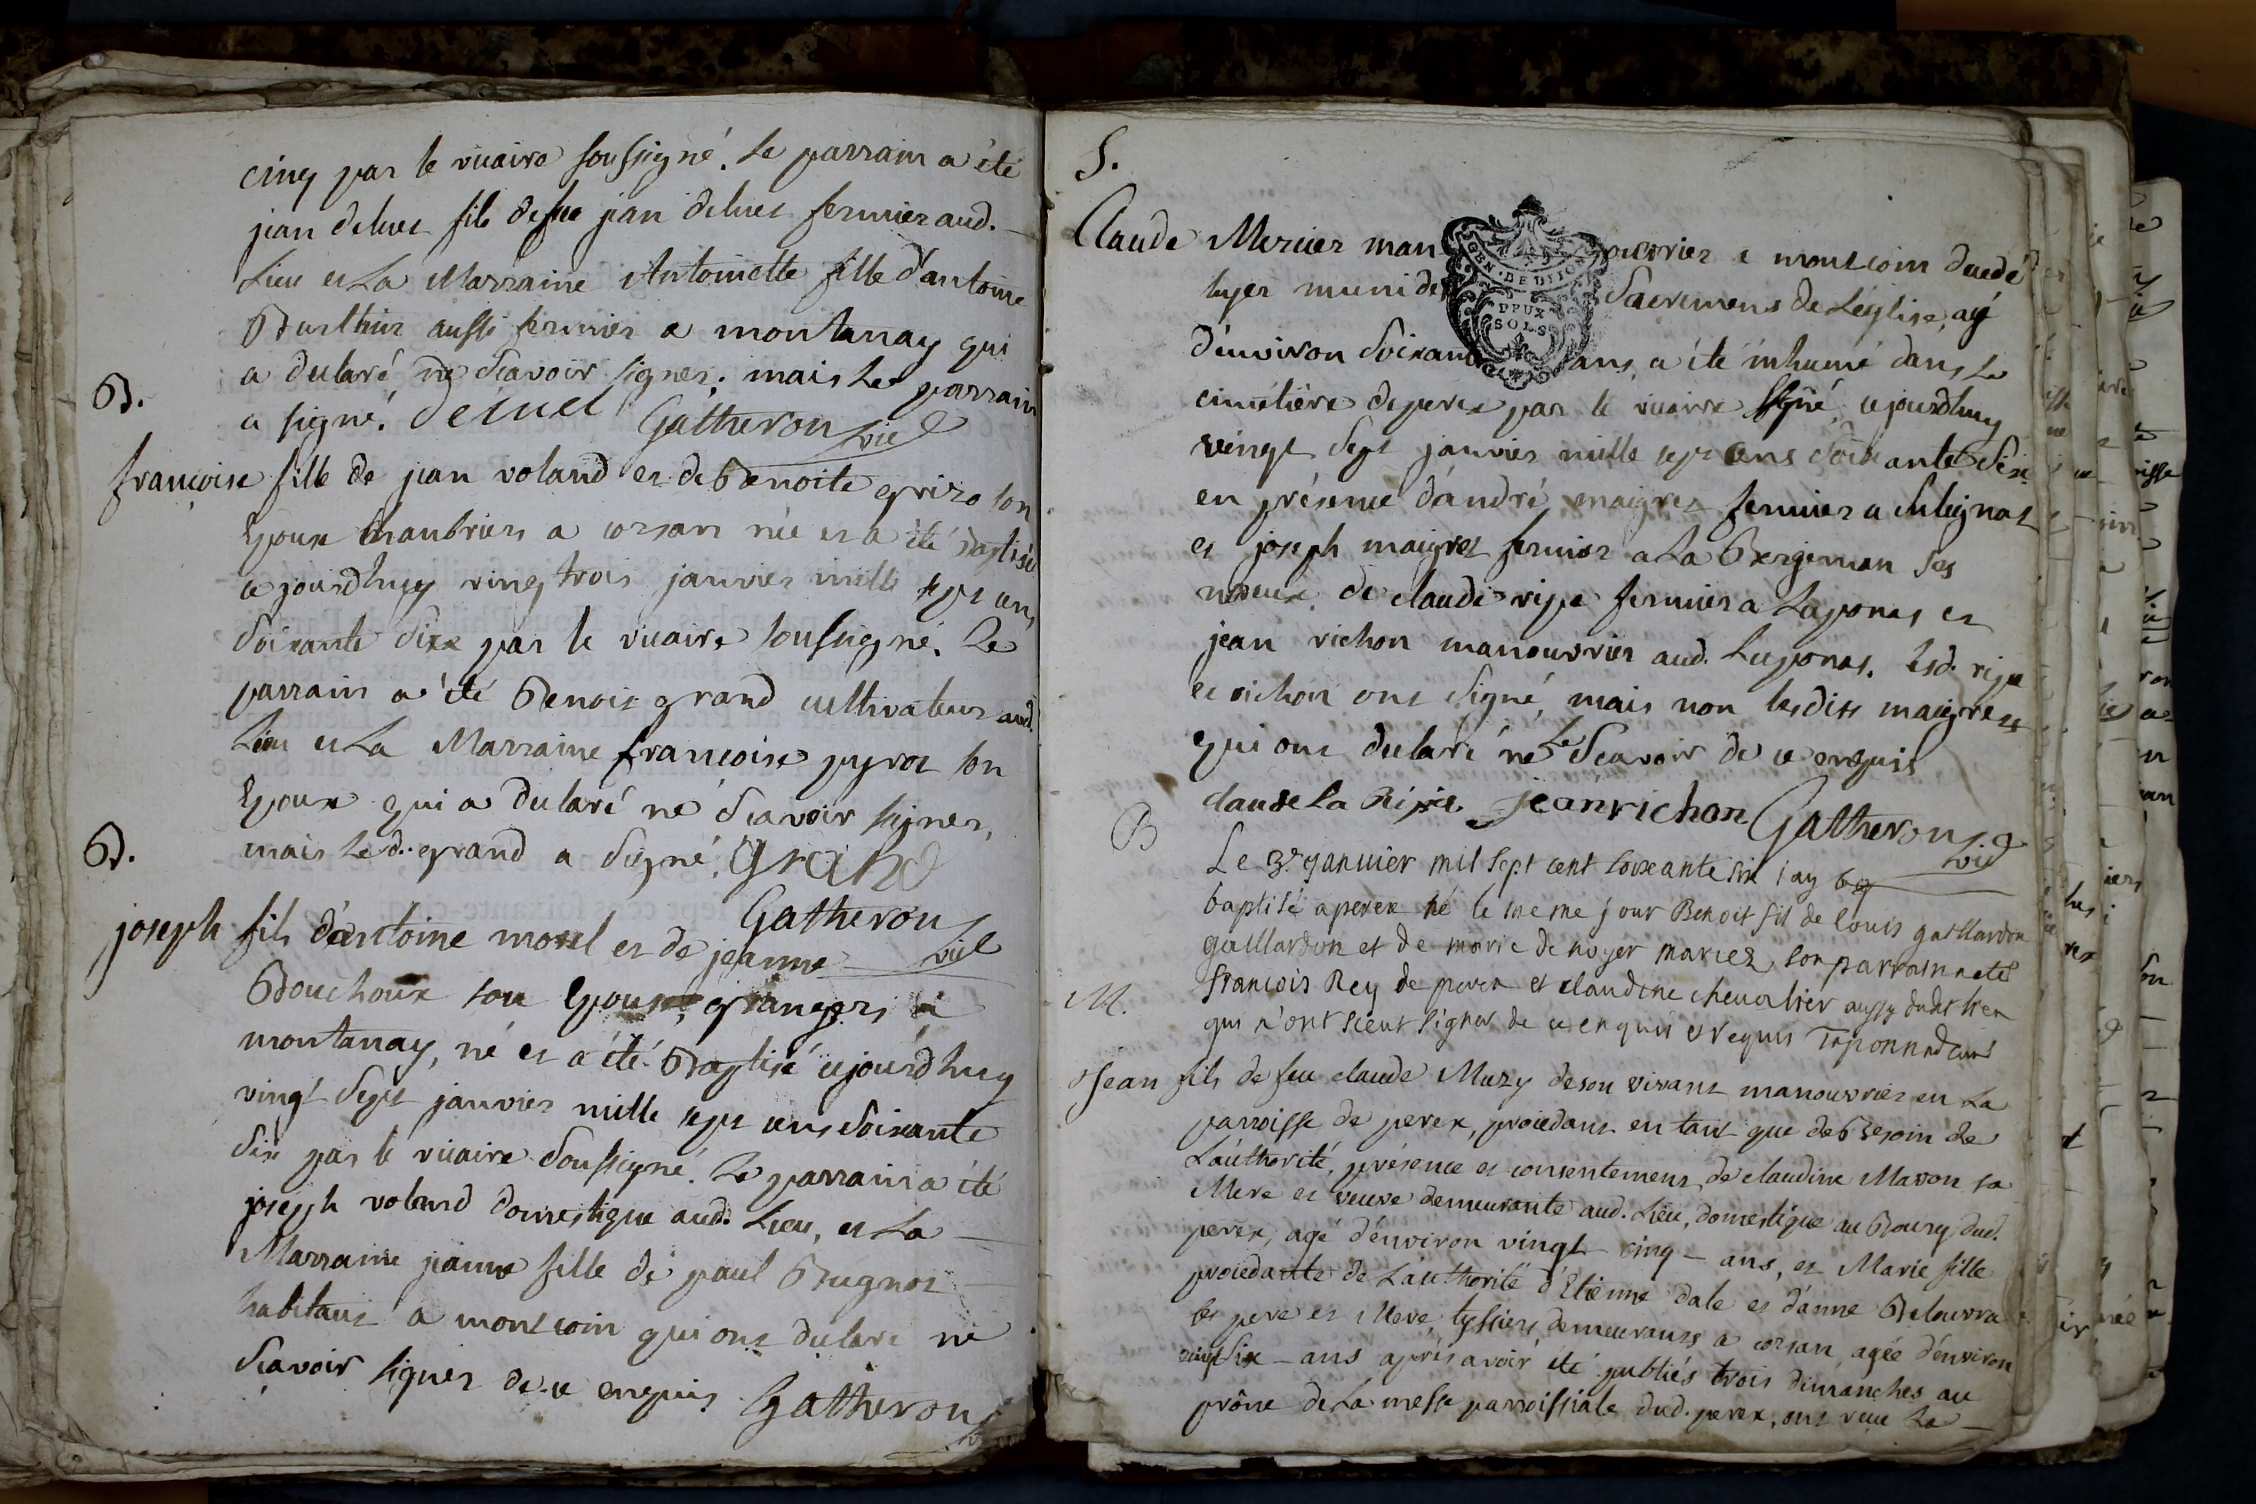 cinq par le vicaire soussigné. Le parrain a été
jean deluet fils de feu jean deluet fermier aud.
Lieu et La Marraine Antoinette fille d'antoine
aussi fermier a montanay qui
a declaré ne sçavoir signer; mais Le parrain
B.
a signé. deluel Gatheron vic
françoise fille de jean voland et de Benoite grizo son
Epouse a corsan née et a été Baptisée
cejourdhuy vingt trois janvier mille sept cens
soixante Sixe par le vicaire soussigné. Le
parrain a été Benoit grand cultivateur aud.
Lieu et La Marraine françoise pyrot son
Epouse qui a declaré ne sçavoir signer,
mais Led. grand a signé. grand
B.
Gatheron vic
joseph fils d'antoine morel et de jeanne
Bouchoux son Epouse, grangers à
montanay, né et a été Baptisé cejourdhuy
vingt Sept janvier mille sept cens soixante
Six par le vicaire soussigné. Le parrain a été
joseph voland domestique aud. Lieu, et La
Marraine jeanne fille de paul Bugnot
habitans a montcoin qui ont declaré ne
sçavoir signer de ce enquis Gatheron
S.
Claude Mercier man ouvrier a montcoin
muni des GEN. DE DIJON DEUX SOLS Sacremens de L'eglise, agé
d'environ Soixante ans, a été inhumé dans Le
cimetière de perex par le vicaire ssigné, cejourdhuy
vingt Sept janvier mille sept cens Soixante Six
en présence d'andré maigret fermier a
et joseph maigret fermier a La Bergeman ses
neveux. de claude ripe fermier a Laponas et
jean richon manouvrier aud. Luponas. Lesd. ripe
et richon ont signé, mais non lesdits maigrets
qui ont declaré ne Le Sçavoir de ce enquis
claude La Ripe. jean richon Gatheron vic
B
Le 3e janvier mil sept cent soixante six j'ay
baptisé a perex né le meme jour Benoit fils de louis gaillardon
gaillardon et de marie de noyer mariez, son parrain a eté
françois Rey de perex et claudine chevalier aussy dudit lieu
M.
qui n'ont sceut signer de ce enquis et requis Taponnad curé
Jean fils de feu claude Muzy de son vivant manouvrier en La
parroisse de perex, procedant en tant que de Besoin de
L'authorité, présence et consentement de claudine Mavon sa
Mere et veuve demeurante aud. Lieu, domestique au Bourg dud.
perex, agé d'environ vingt cinq ans, et Marie fille
procedante de L'authorité d'Etienne dale et d'anne
ses pere et Mere, tyssiers demeurants a corsan, agée d'environ
vingt six ans après avoir été publiés trois dimanches au
prône de La messe parroissiale dud. perex, ont reçu La